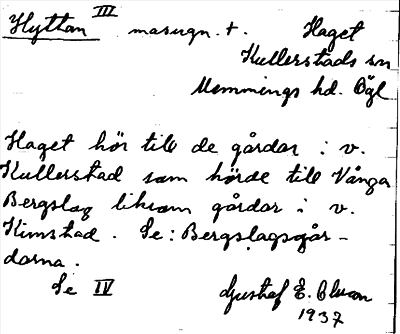 Hyttan III masugn. +. Haget
Kullerstads sn
Memmings hd. Ögl
Haget hör till de gårdar i v.
Kullerstad som hörde till Vånga
Bergslag liksom gårdar i v.
Kimstad. Se: Bergslagsgår-
darna.
Se IV Gustaf E.
1937